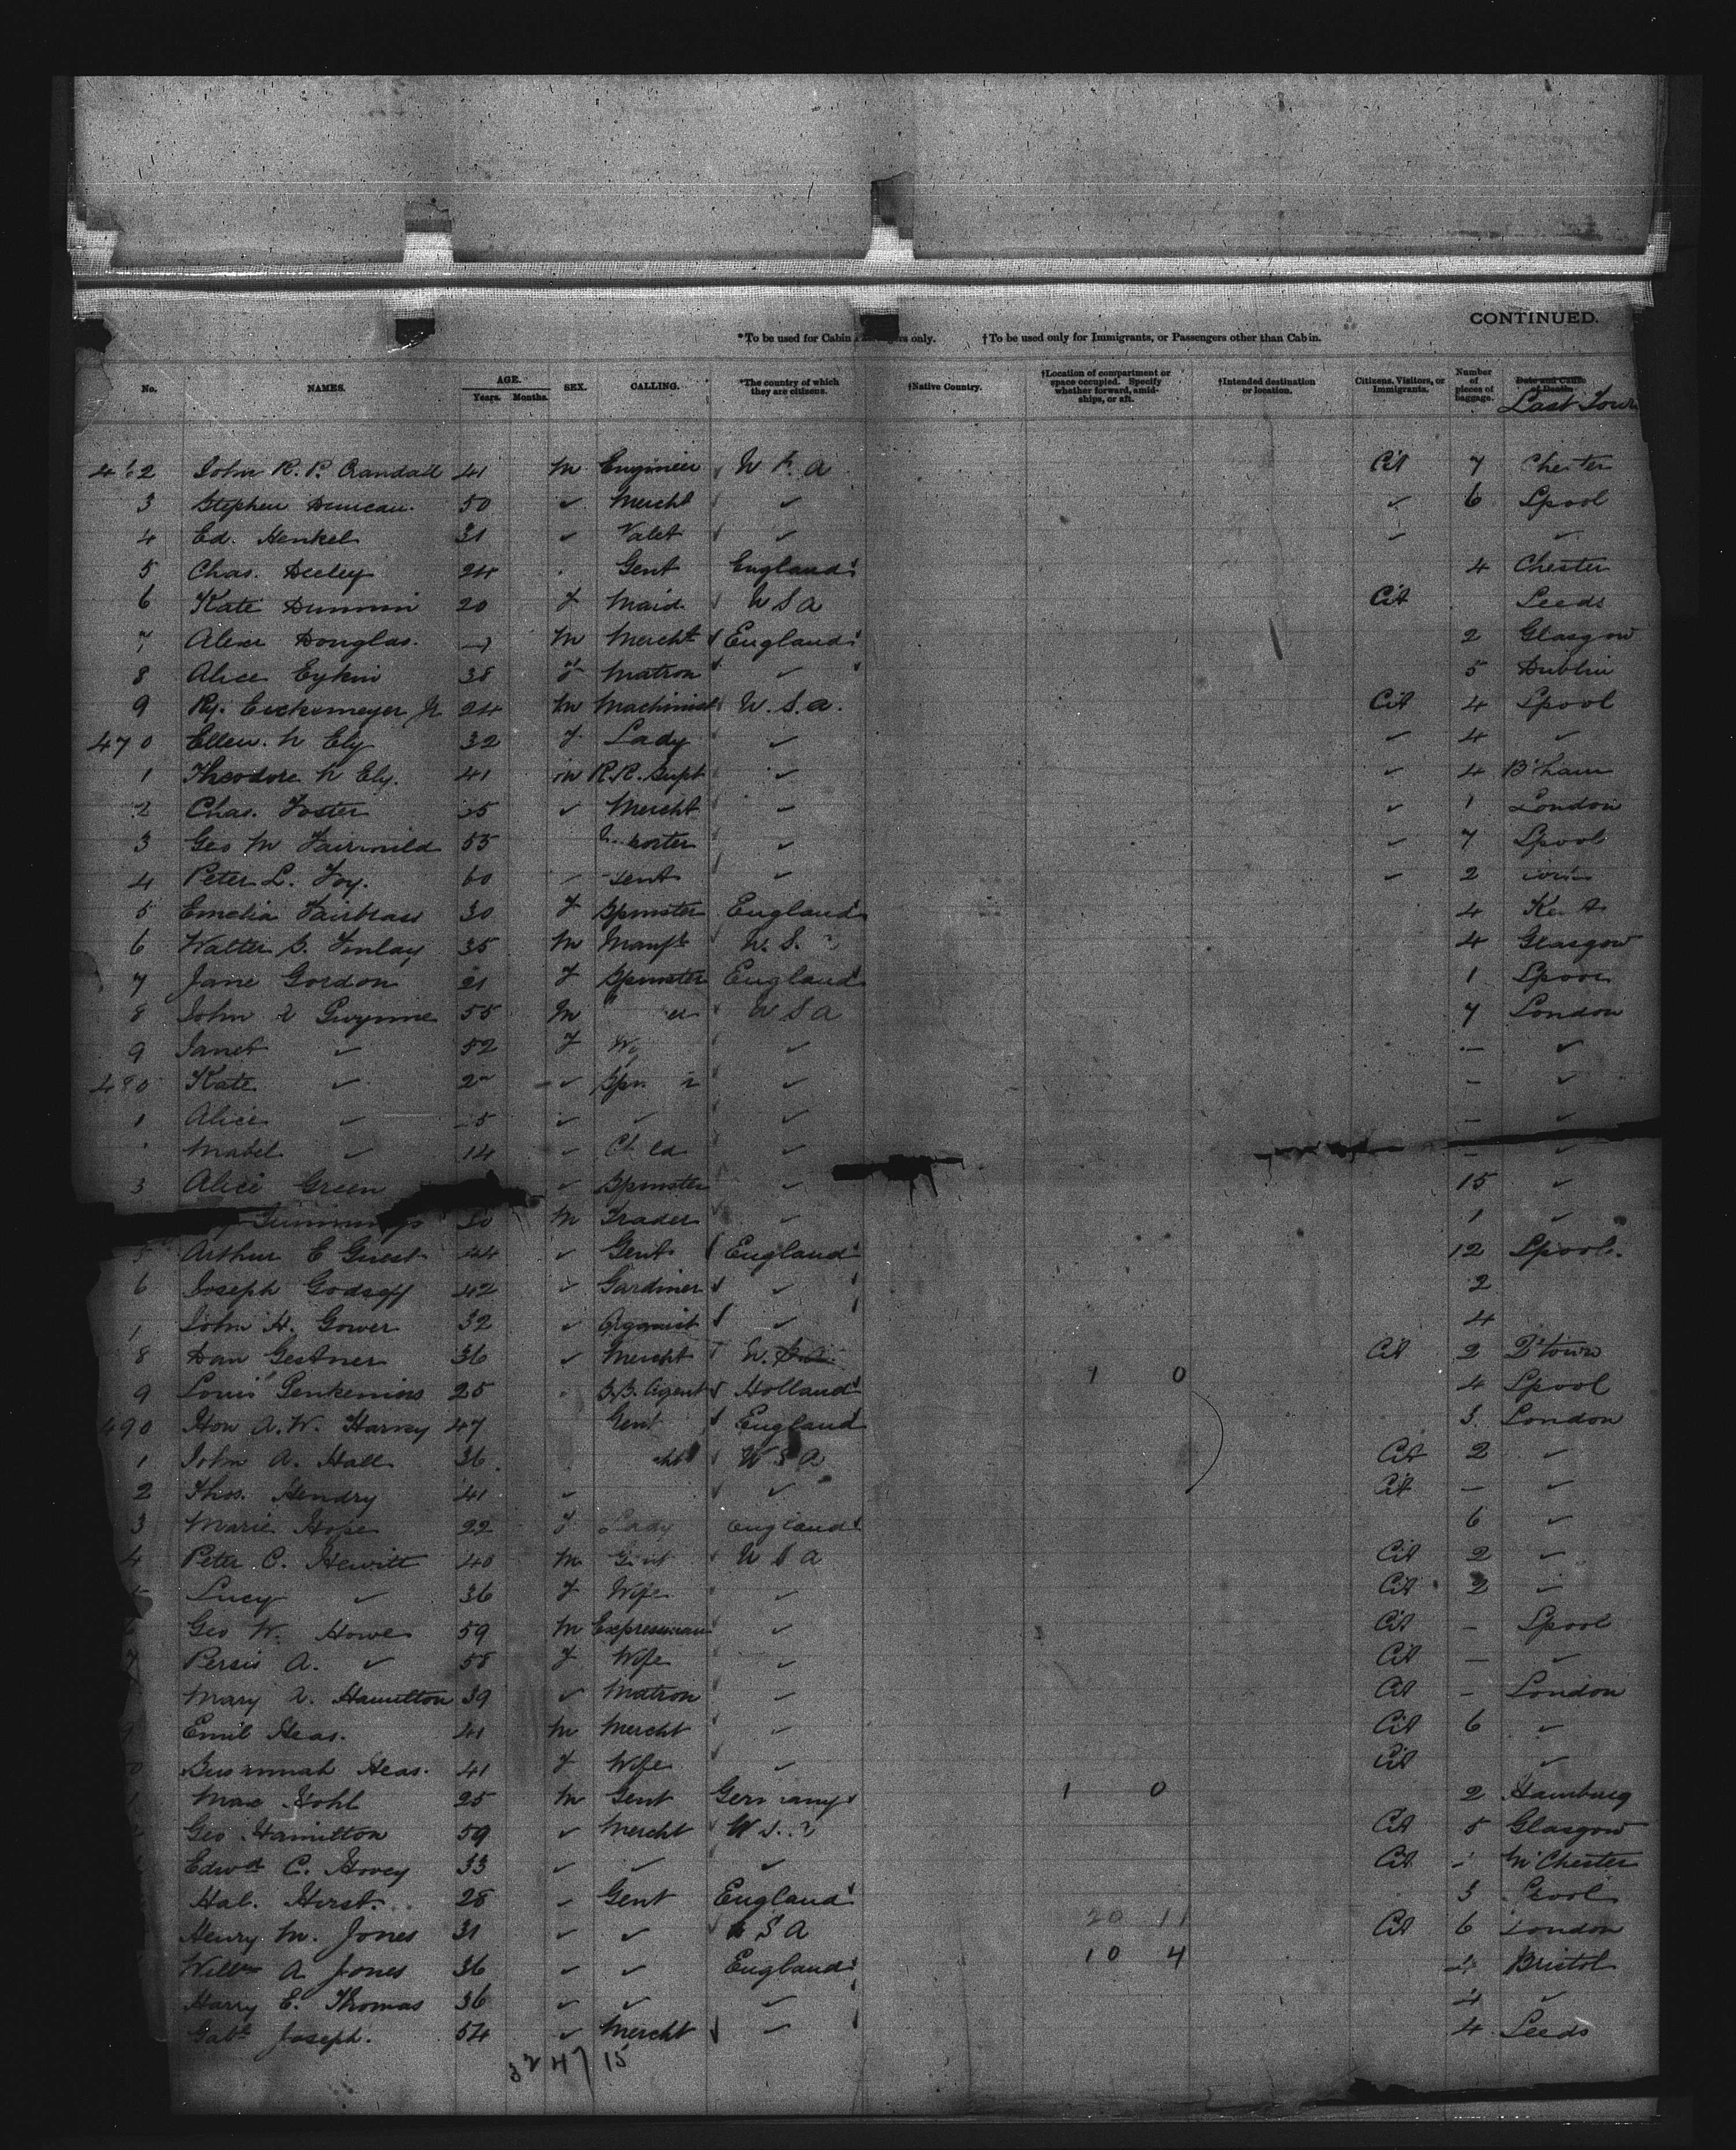 CONTINUED.
*To be used for Cabin only. †To be used only for Immigrants, or Passengers other than Cabin.
No. NAMES. AGE. Years. Months. SEX. CALLING. *The country of which they are citizens. †Native Country. †Location of compartment or space occupied. Specify whether forward, amidships, or aft. †Intended destination or location. Citizens, Visitors, or Immigrants. Number of pieces of baggage. Date and Cause of Death. Last Town
462 John R. P. Crandall 41 M Engineer U S A Cit 7 Chester
3 Stephen Duncan. 50 ✓ Mercht ✓ ✓ 6 Lpool
4 Ed. Henkel 31 ✓ Valet ✓ ✓ ✓
5 Chas. Deeley 24 Gent England 4 Chester
6 Kate 20 F Maid. U S A Cit Leeds
7 Alexr Douglas. M Mercht England 2 Glasgow
8 Alice Eykin 38 F Matron ✓ 5 Dublin
9 Eickemeyer Jr 24 M Machinist U.S.A. Cit 4 Lpool
470 Ellen. N Ely 32 F Lady ✓ ✓ 4 ✓
1 Theodore N Ely. 41 M R.R. Supt ✓ ✓ 4 B'ham
2 Chas. Foster ✓ Mercht ✓ ✓ 1 London
3 Geo M Fairchild 55 ✓ ✓ 7 Lpool
4 Peter L. Foy. 60 Gent ✓ ✓ 2
5 Emelia Fairbrass 30 F Spinster England 4
6 Walter S. Finlay 35 M Manfr U.S. 4 Glasgow
7 Jane Gordon 21 F Spinster England 1 Lpool
8 John Gwynne 55 M U S A 7 London
9 Janet ✓ 52 F ✓ — ✓
480 Kate ✓ ✓ ✓ – ✓
1 Alice ✓ ✓ ✓ ✓ – ✓
Mabel ✓ 14 ✓ ✓ – ✓
3 Alice Green ✓ Spinster ✓ 15 ✓
M Trader ✓ 1 ✓
5 Arthur E Guest 44 ✓ Gent England 12 Lpool.
6 Joseph Godseff 42 ✓ Gardiner ✓ 2
John H. Gower 32 ✓ Organist ✓ 4
8 Dan Gestner 36 ✓ Mercht U.S.A. Cit 2 Q'town
9 Louis 25 Agent Holland 1 0 4 Lpool
490 Hon A. W. Harvey 47 Gent England 3 London
1 John A. Hall 36 U S A Cit 2 ✓
2 Thos. Hendry 41 ✓ ✓ Cit — ✓
3 Marie Hope 22 F Lady England 6 ✓
4 Peter C. Hewitt 40 M Gent U S A Cit 2 ✓
5 Lucy ✓ 36 F Wife ✓ Cit 2 ✓
Geo W. Howe 59 M Expressman ✓ Cit – Lpool
7 Persis A. ✓ 58 F Wife ✓ Cit — ✓
Mary A. Hamilton 39 ✓ Matron ✓ Cit – London
9 Emil Heas. 41 M Mercht ✓ Cit 6 ✓
0 Susannah Heas. 41 F Wife ✓ Cit ✓
Max Kohl 25 M Gent Germany 1 0 2 Hamburg
Geo Hamilton 59 ✓ Mercht Cit 5 Glasgow
Edwd C. Hovey 33 ✓ ✓ ✓ Cit M'Chester
Hal. Hurst. 28 ✓ Gent England 3 Lpool
Henry M. Jones 31 ✓ ✓ U S A 20 11 Cit 6 London
Willm A Jones 36 ✓ ✓ England 10 4 4 Bristol
Harry E. Thomas 36 ✓ ✓ ✓ 4 ✓
Gabl Joseph. 54 ✓ Mercht ✓ 4 Leeds
32 47 15